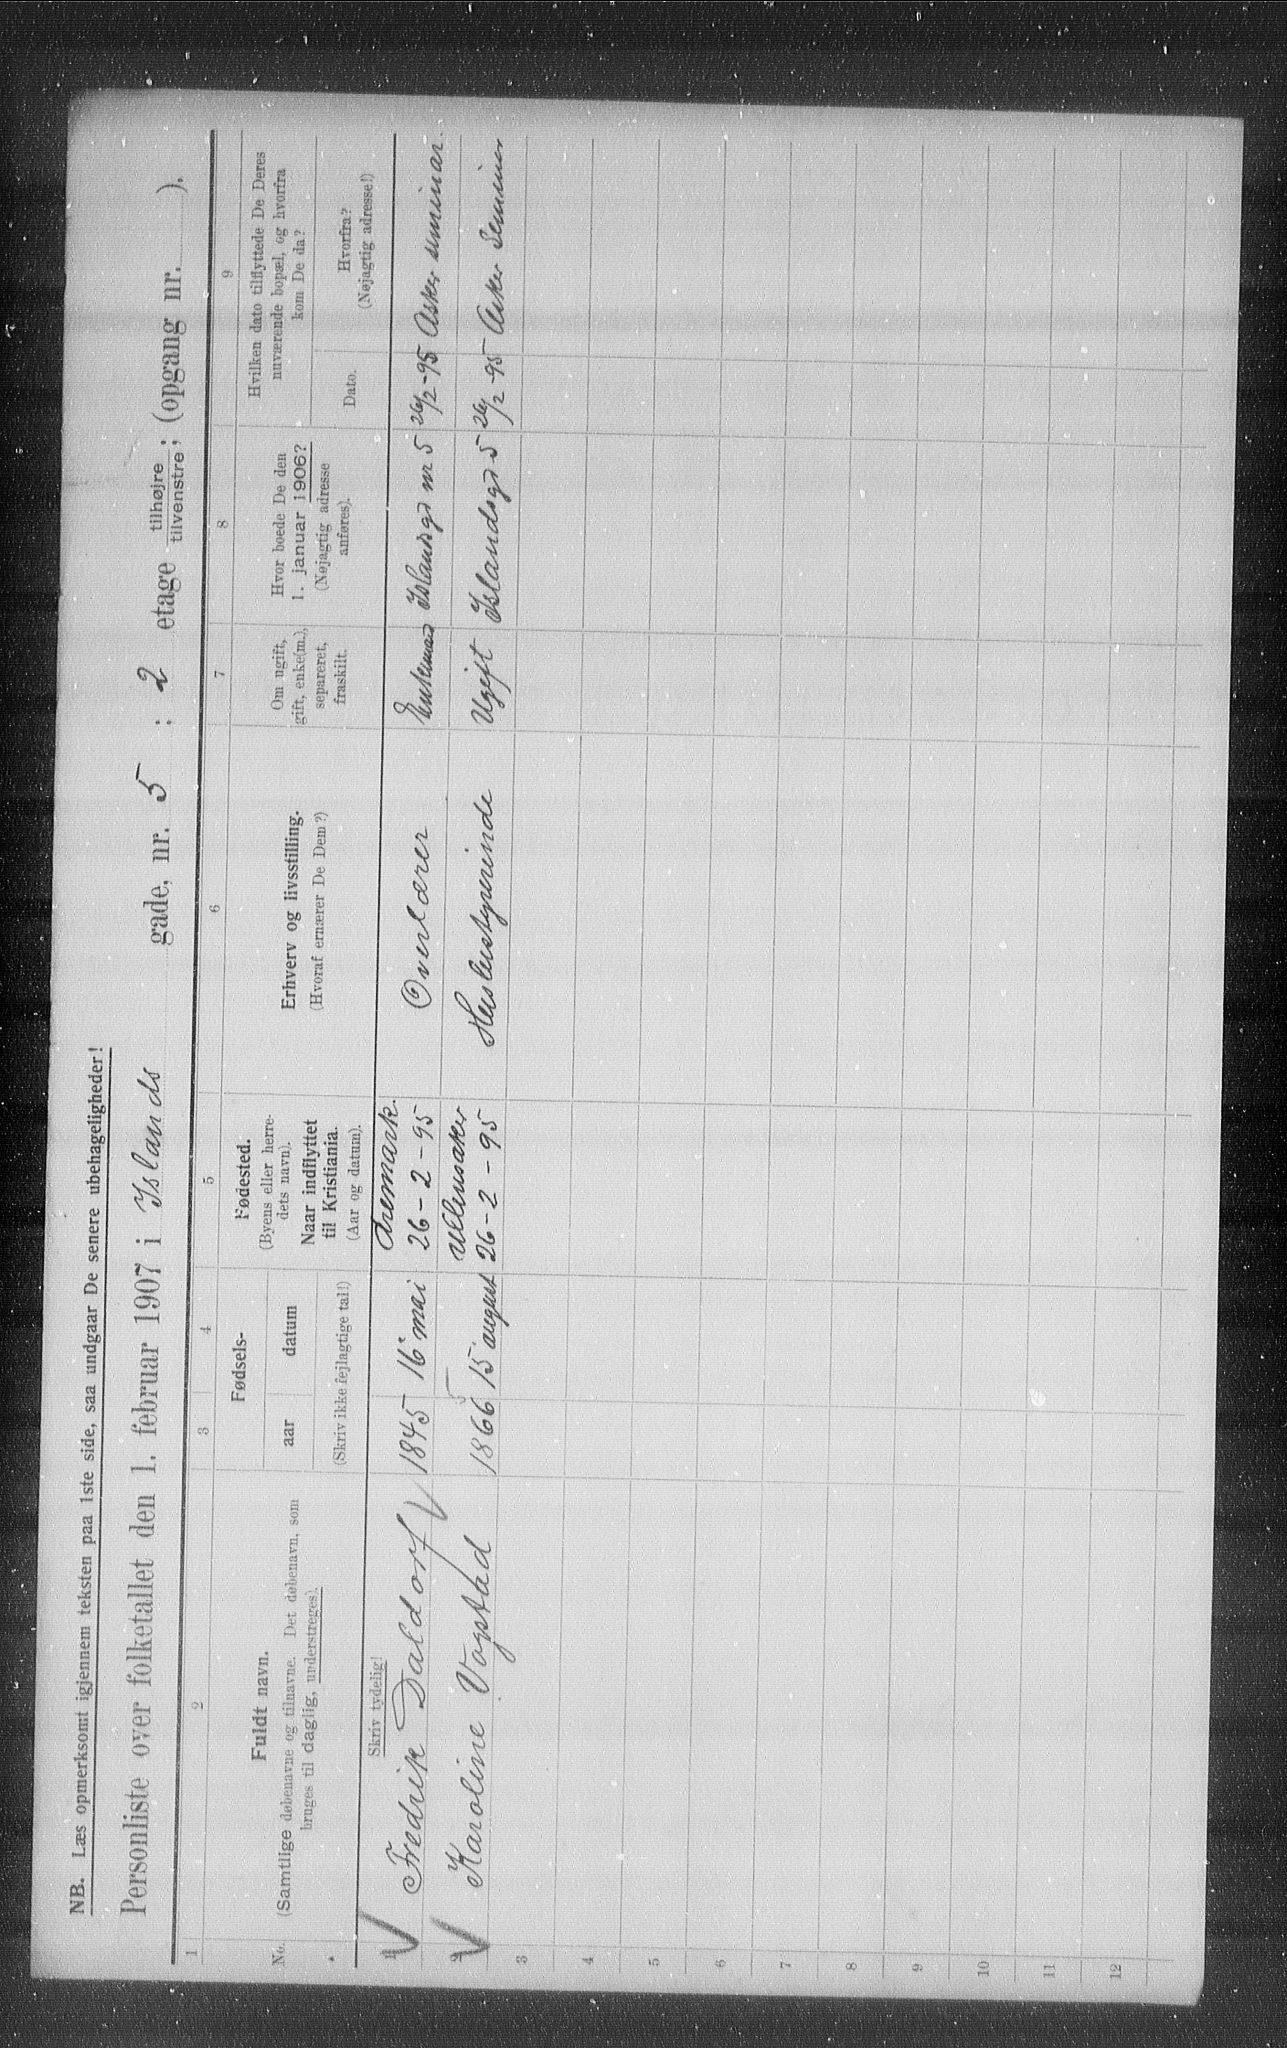 NB. Læs opmerksomt igjennem teksten paa 1ste side, saa undgaar De senere ubehageligheder!
Personliste over folketallet den 1. februar 1907 i Islands gade, nr. 5 ; 2 etage tilhøjre / tilvenstre ; (opgang nr. ).
1 2 3 4 5 6 7 8 9
No.
Fuldt navn.
(Samtlige døbenavne og tilnavne. Det døbenavn, som
bruges til daglig, understreges).
Skriv tydelig!
Fødsels-
aar datum
(Skriv ikke fejlagtige tal!)
Fødested.
(Byens eller herre-
dets navn).
Naar indflyttet
til Kristiania.
(Aar og datum).
Erhverv og livsstilling.
(Hvoraf ernærer De Dem?)
Om ugift,
gift, enke(m.),
separeret,
fraskilt.
Hvor boede De den
1. januar 1906?
(Nøjagtig adresse
anføres).
Hvilken dato tilflyttede De Deres
nuværende bopæl, og hvorfra
kom De da?
Dato.
Hvorfra?
(Nøjagtig adresse!)
Aremark.
1 Fredrik Daldorf 1845 16 mai 26-2-95 Overlærer Enkemand Islandsgd nr 5 26/2-95 Asker seminar.
Ullensaker
2 Karoline Vogstad 1866 15 august 26-2-95 Husbestyrerinde Ugift Islandsgd 5 26/2-95 Asker Seminar
3
4
5
6
7
8
9
10
11
12